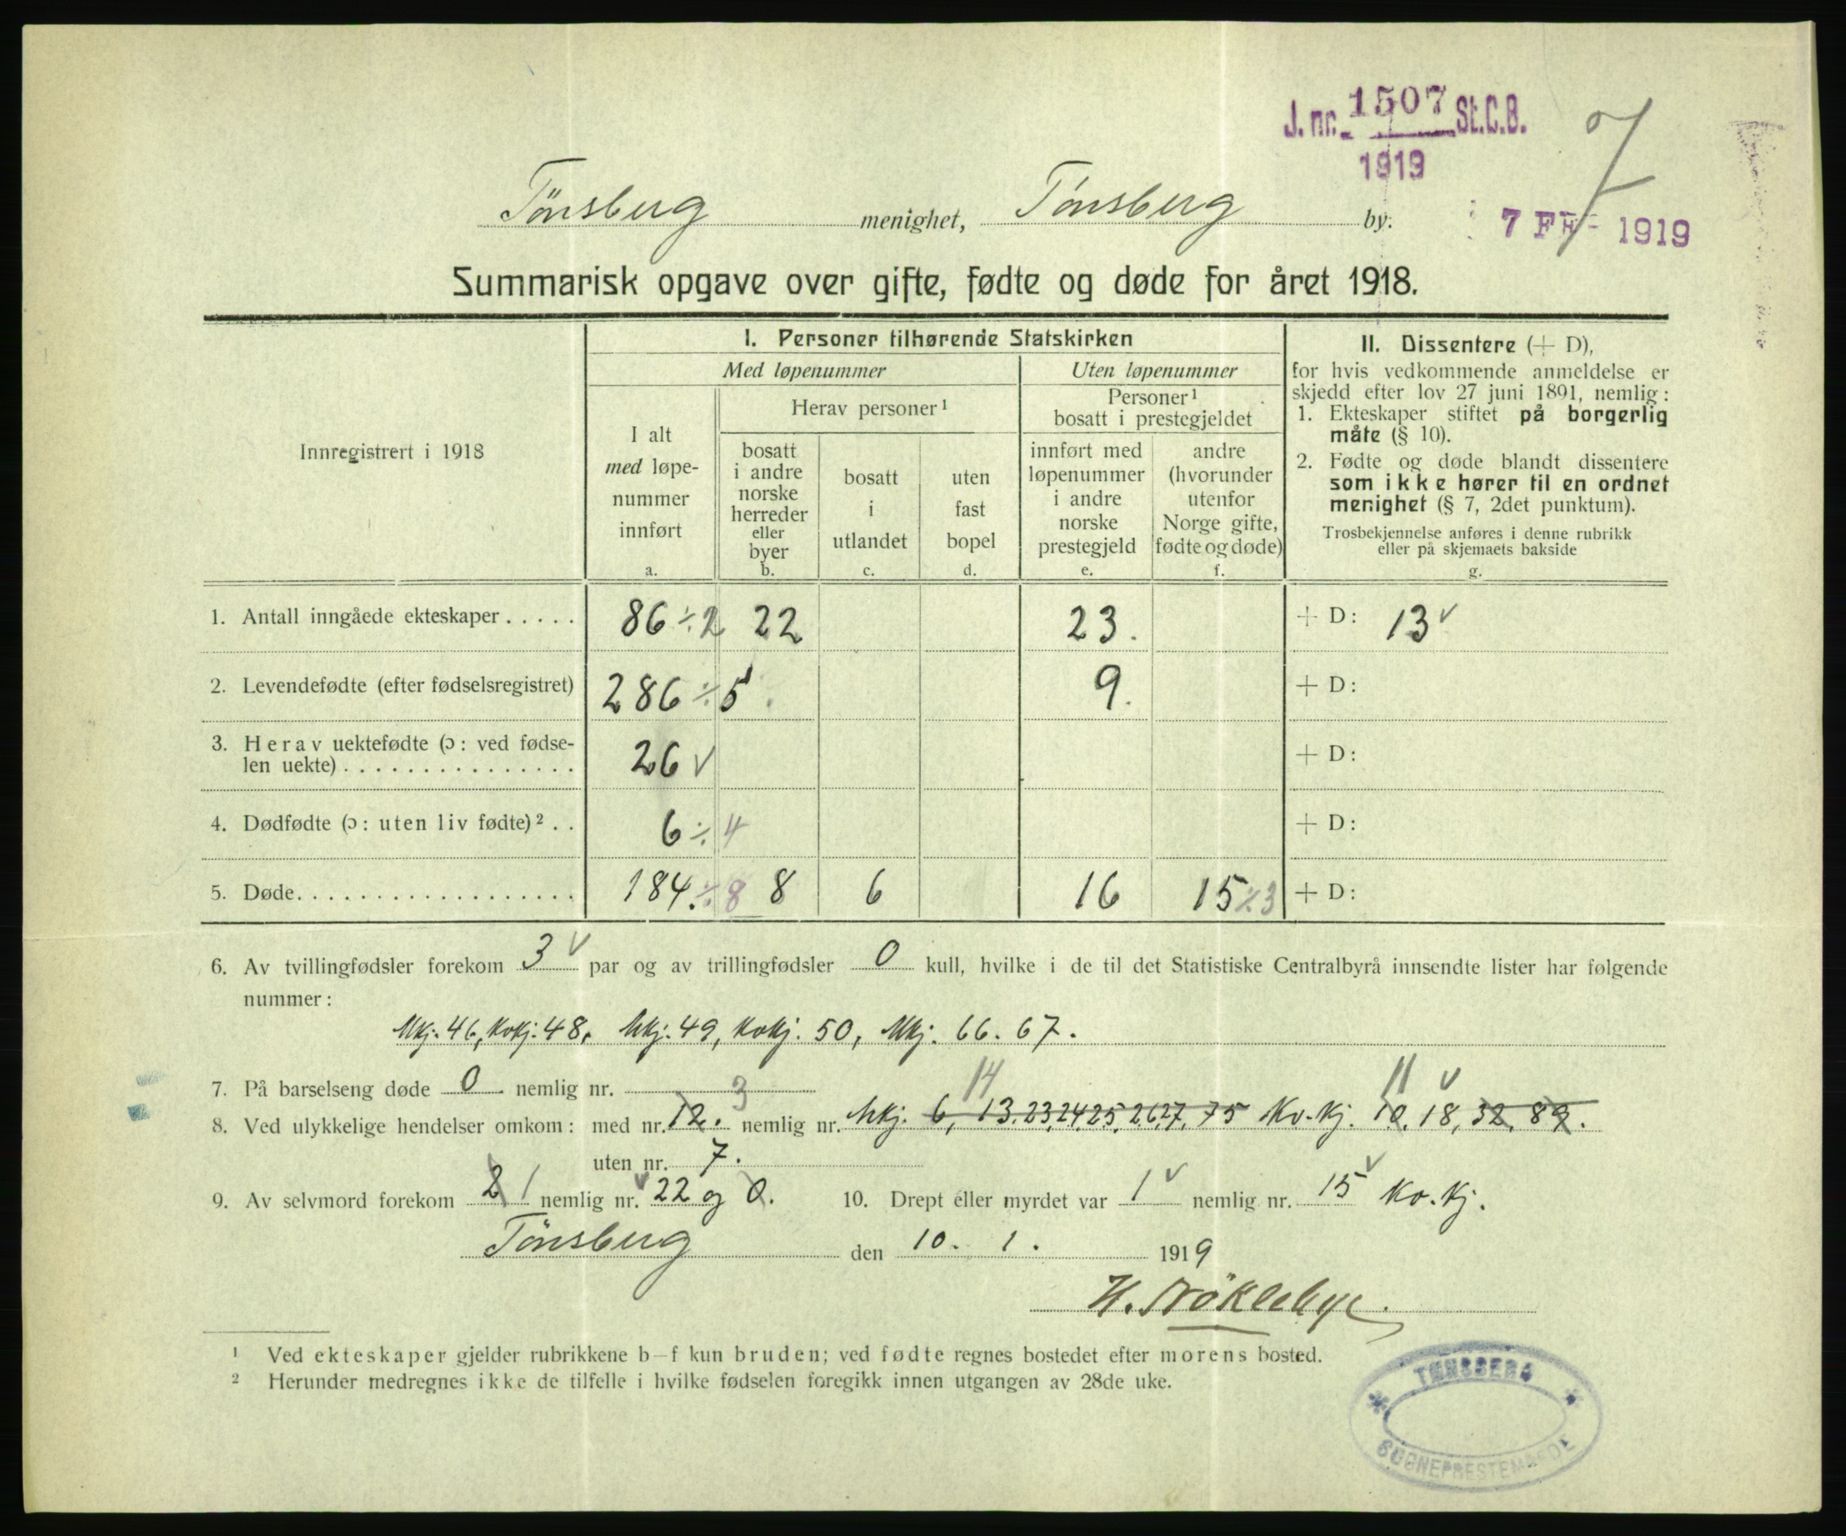 J. nr. 1507 St.C.B.
1919
7
7 FEB 1919
Tønsberg menighet, Tønsberg by.
Summarisk opgave over gifte, fødte og døde for året 1918.
Innregistrert i 1918
I. Personer tilhørende Statskirken
Med løpenummer
Uten løpenummer
I alt
med løpe-
nummer
innført
a.
Herav personer¹
bosatt
i andre
norske
herreder
eller
byer
b.
bosatt
i
utlandet
c.
uten
fast
bopel
d.
Personer¹
bosatt i prestegjeldet
innført med
løpenummer
i andre
norske
prestegjeld
e.
andre
(hvorunder
utenfor
Norge gifte,
fødte og døde)
f.
II. Dissentere (+ D),
for hvis vedkommende anmeldelse er
skjedd efter lov 27 juni 1891, nemlig:
1. Ekteskaper stiftet på borgerlig
måte (§ 10).
2. Fødte og døde blandt dissentere
som ikke hører til en ordnet
menighet (§ 7, 2det punktum).
Trosbekjennelse anføres i denne rubrikk
eller på skjemaets bakside
g.
1. Antall inngåede ekteskaper . . . . . 86 ÷ 2 22 23. + D: 13 √
2. Levendefødte (efter fødselsregistret) 286 ÷ 5 . 9. + D:
3. Herav uektefødte (ɔ: ved fødse-
len uekte) . . . . . . . . . . . . . . . 26 √ + D:
4. Dødfødte (ɔ: uten liv fødte)² . . 6 ÷ 4 + D:
5. Døde. . . . . . . . . . . . . . . . . . 184. ÷ 8 8 6 16 15 ÷ 3 + D:
6. Av tvillingfødsler forekom 3 √ par og av trillingfødsler 0 kull, hvilke i de til det Statistiske Centralbyrå innsendte lister har følgende
nummer:
Mkj. 46, Kvkj. 48, Mkj. 49, Kvkj. 50, Mkj. 66. 67.
7. På barselseng døde 0 nemlig nr.
3 14 11 √
8. Ved ulykkelige hendelser omkom: med nr. 12. nemlig nr. Mkj. 6, 13. 23, 24, 25, 26, 27, 75 Kv. Kj. 10, 18, 32, 89.
uten nr. 7.
9. Av selvmord forekom 2 1 nemlig nr. √ 22 og 0. 10. Drept eller myrdet var 1 √ nemlig nr. 15 √ Kv. Kj.
Tønsberg den 10. 1. 1919
H. Nøklebye.
¹ Ved ekteskaper gjelder rubrikkene b—f kun bruden; ved fødte regnes bostedet efter morens bosted.
² Herunder medregnes ikke de tilfelle i hvilke fødselen foregikk innen utgangen av 28de uke.
TØNSBERG
SOGNEPRESTEMBEDE